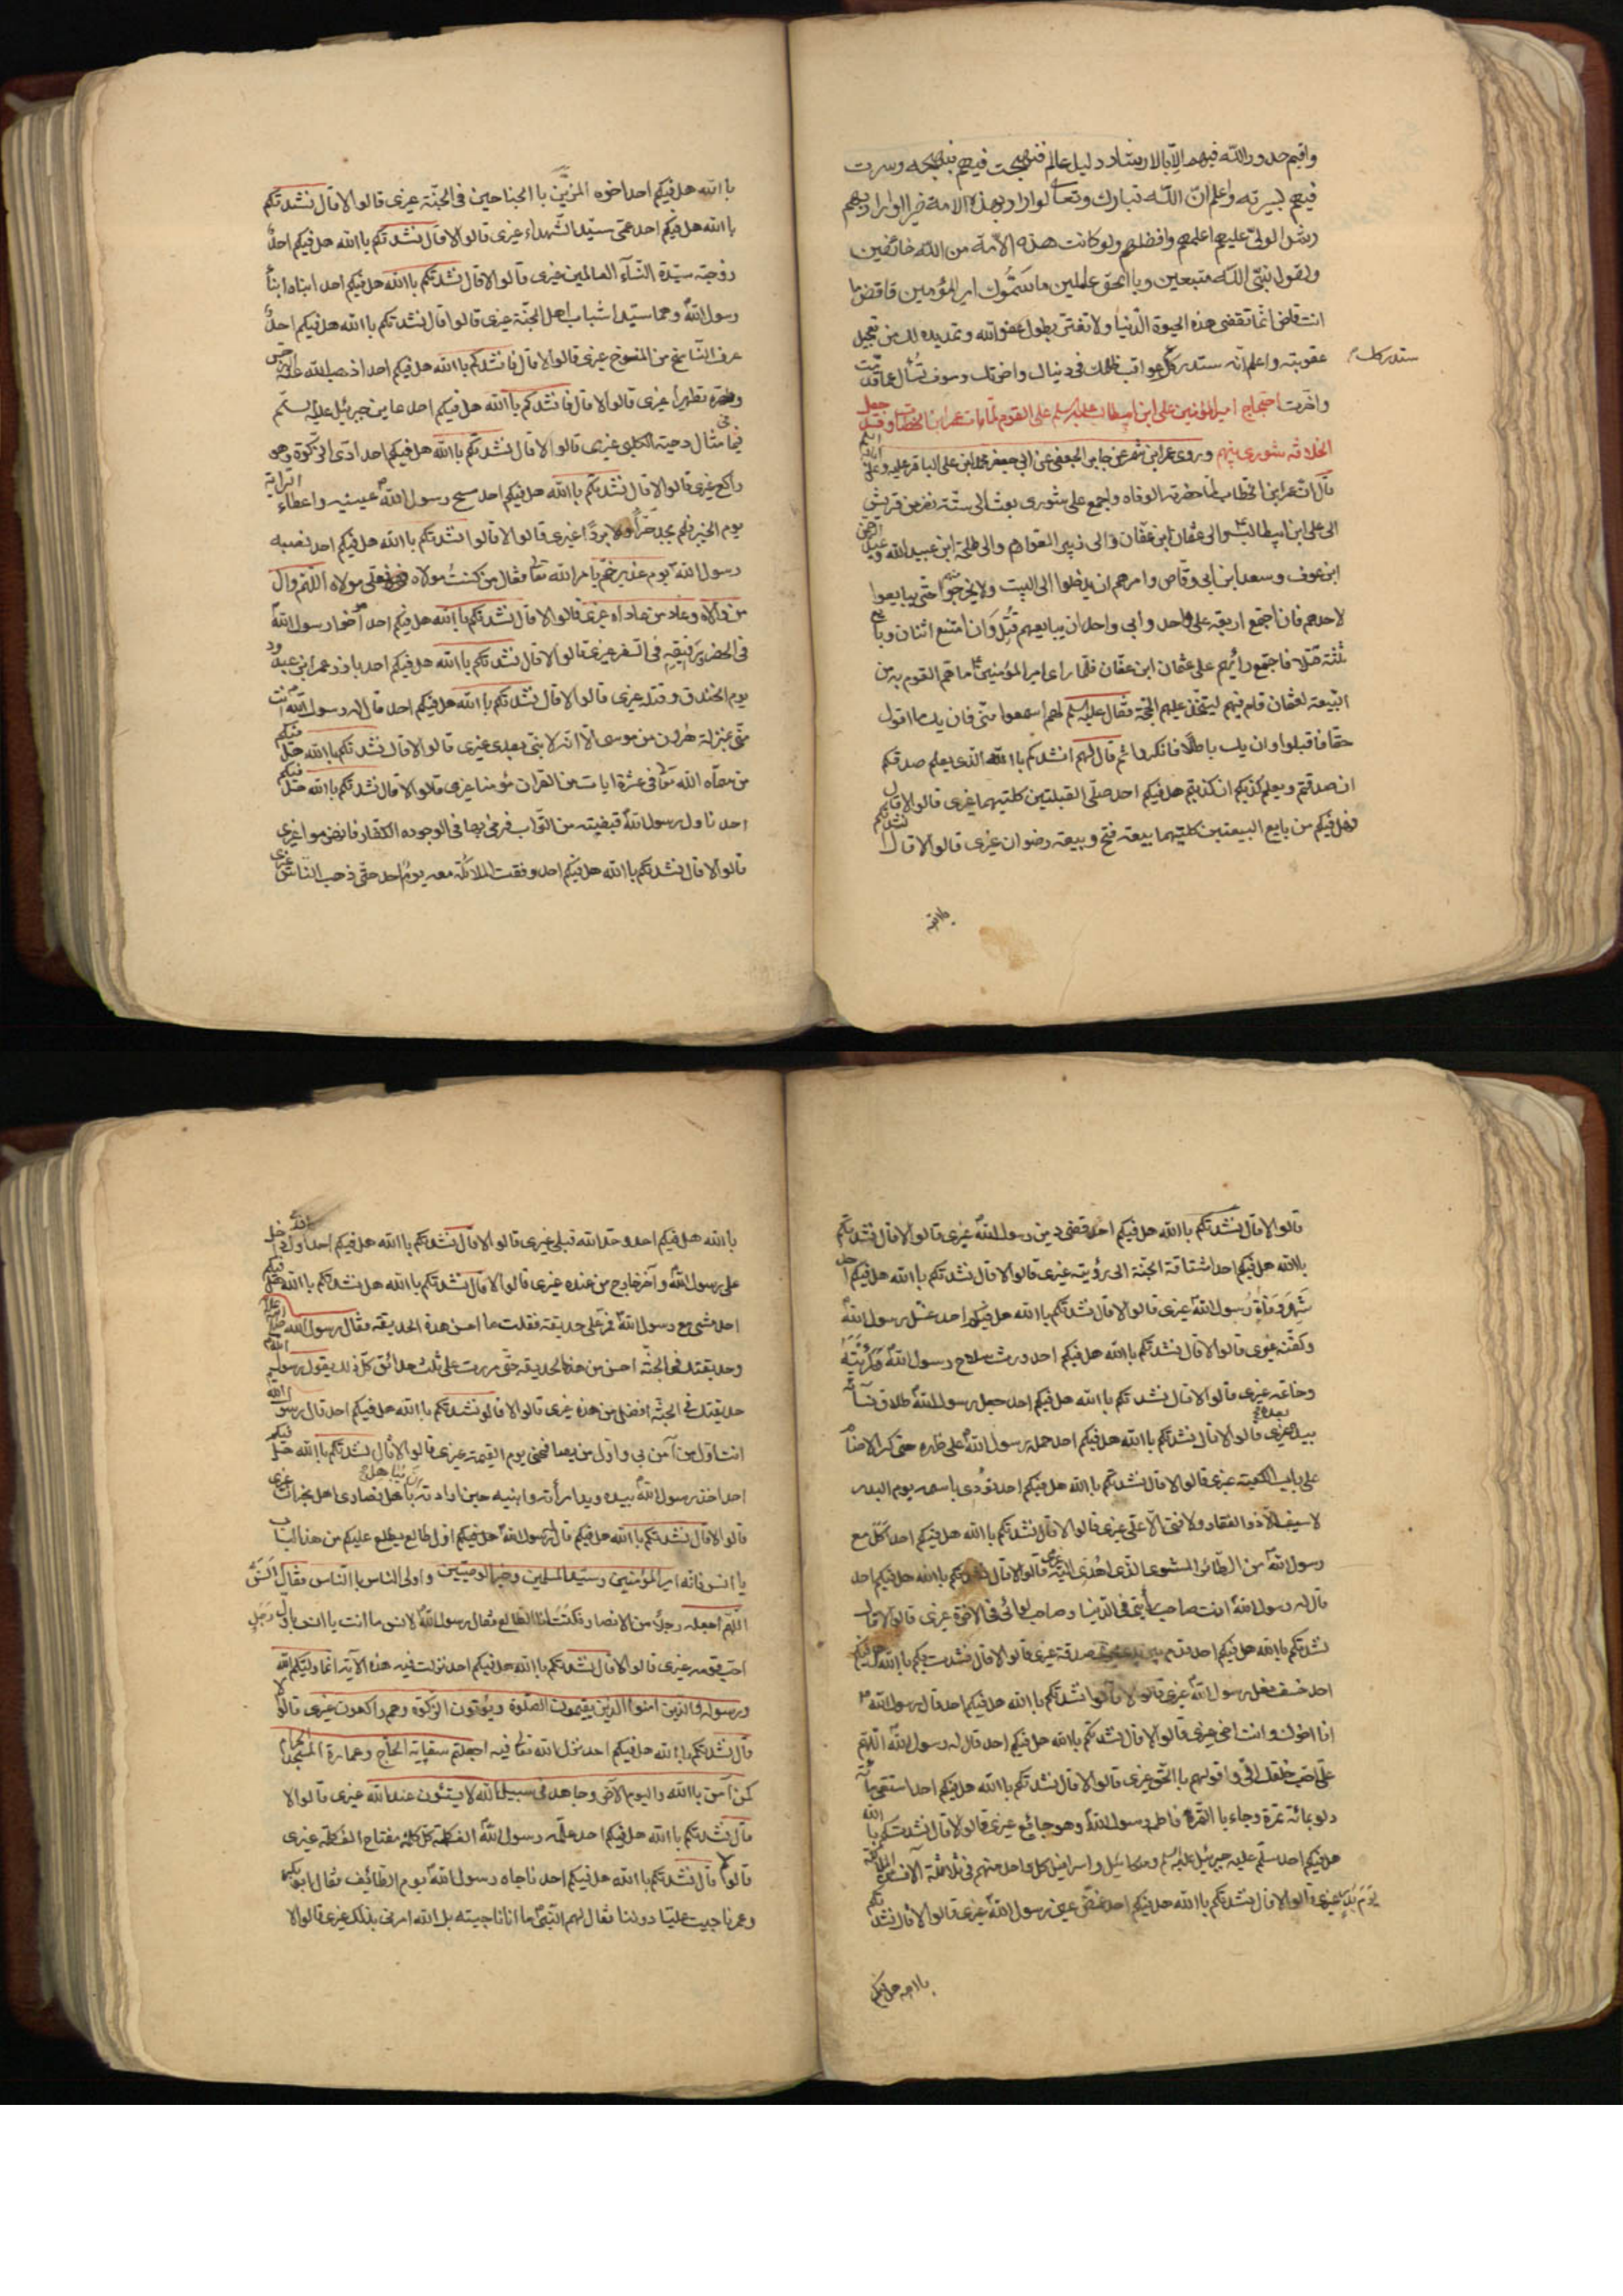 واقيم حدود الله فيهم الا بالارشاد دليل عالم فنهجت فيهم بنهجه وسرت
فيهم بسيرته واعلم ان الله تبارك وتعالى لو اراد بهذه الامة خيرا او اراد بهم
رشدا لولى عليهم اعلمهم وافضلهم ولو كانت هذه الامة من الله خائفين
ولقول نبى الله متبعين وبا الحق عاملين ما سمّوك امير المؤمنين فاقض ما
انت قاض انما تقضى هذه الحيوة الدنيا ولا تغتر بطول عفو الله وتمديده لك من تعجيل
عقوبته واعلم انه ستدرك عواقب ظلمك فى دنياك واخرتك وسوف تسأل عما قدمت
ستدرك
واخرت احتجاج امير المؤمنين على ابن ابيطالب عليه السلم على القوم لما مات عمر ابن الخطاب وقد جعل
الخلافة شورى بينهم وروى عمر ابن شمر عن جابر الجعفى عن ابى جعفر محمد ابن على الباقر عليه وعلى ابائه السلم
قال ان عمر ابن الخطاب لما حضرته الوفاة واجمع على شورى بعث الى ستة نفر من قريش
الى على ابن ابيطالب والى عثمان ابن عفان والى زبير العوام والى طلحة ابن عبيد الله وعبد الرحمن
ابن عوف وسعد ابن ابى وقاص وامرهم ان يدخلوا الى البيت ولا يخرجوا منه حتى يبايعوا
لاحدهم فان اجتمع اربعة على واحد وابى واحد ان يبايعهم قتل وان امتنع اثنان وبايع
ثلثة قتلا فاجتمع رائهم على عثمان ابن عفان فلما راى امير المؤمنين ما هم القوم به من
البيعة لعثمان قام فيهم ليتخذ عليهم الحجة فقال عليه السلم لهم اسمعوا منى فان يك ما اقول
حقا فاقبلوا وان يك باطلا فانكروا ثم قال لهم انشدكم با الله الذى يعلم صدقكم
ان صدقتم ويعلم كذبكم ان كذبتم هل فيكم احد صلى القبلتين كلتيهما غيرى قالوا لا قال
فهل فيكم من بايع البيعتين كلتيهما بيعة فتح وبيعة رضوان غيرى قالوا لا قال نشدتكم
با الله
با الله هل فيكم احد اخوه المزيّن با الجناحين فى الجنة غيرى قالوا لا قال نشدتكم
با الله هل فيكم احد عمى سيد الشهداء غيرى قالوا لا قال نشدتكم با الله هل فيكم احد
زوجته سيدة النساء العالمين غيرى قالوا لا قال نشدتكم با الله هل فيكم احد ابناه ابنا
رسول الله وهما سيدا شباب اهل الجنة غيرى قالوا لا قال نشدتكم با الله هل فيكم احد
عرف الناسخ من المنسوخ غيرى قالوا لا قال فانشدكم با الله هل فيكم احد اذهب الله عنه الرجس
وطهره تطهيرا غيرى قالوا لا قال فانشدكم با الله هل فيكم احد عاين جبرئيل عليه السلم
فى مثال دحية الكلبى غيرى قالوا لا قال نشدتكم با الله هل فيكم احد ادى الزكوة وهو
راكع غيرى قالوا لا قال نشدتكم با الله هل فيكم احد مسح رسول الله عينيه واعطاه الراية
يوم الخيبر فلم يجد حرا ولا بردا غيرى قالوا لا قالوا نشدتكم با الله هل فيكم احد نصبه
رسول الله يوم غدير خم بامر الله تعالى فقال من كنت مولاه فعلى مولاه اللهم وال
من والاه وعاد من عاداه غيرى قالوا لا قال نشدتكم با الله هل فيكم احد اخوا رسول الله
فى الحضر ورفيقه فى السفر غيرى قالوا لا قال نشدتكم با الله هل فيكم احد بارز عمر ابن عبد ود
يوم الخندق وقتله غيرى قالوا لا قال نشدتكم با الله هل فيكم احد قال له رسول الله انت
منى بمنزلة هرون من موسى الا انه لا نبى بعدى غيرى قالوا لا قال نشدتكم با الله هل فيكم
من سماه الله تعالى فى عشرة ايات من القران مؤمنا غيرى قالوا لا قال نشدتكم با الله هل فيكم
احد ناول رسول الله قبضة من التراب فرمى بها فى الوجوه الكفار فانهزموا غيرى
قالوا لا قال نشدتكم با الله هل فيكم احد وقفت الملائكة معه يوم احد حتى ذهب الناس غيرى
قالوا لا قال نشدتكم با الله هل فيكم احد قضى دين رسول الله غيرى قالوا لا قال نشدتكم
با الله هل فيكم احد اشتاقة الجنة الى رؤيته غيرى قالوا لا قال نشدتكم با الله هل فيكم احد
شهد وفاة رسول الله غيرى قالوا لا قال نشدتكم با الله هل فيكم احد غسل رسول الله
وكفنه غيرى قالوا لا قال نشدتكم با الله هل فيكم احد ورث سلاح رسول الله ورايته
وخاتمه غيرى قالوا لا قال نشدتكم با الله هل فيكم احد جعل رسول الله طلاق نسائه
بيده غيرى قالوا لا قال نشدتكم با الله هل فيكم احد حمله رسول الله على ظهره حتى كسر الاصنام
على باب الكعبة غيرى قالوا لا قال نشدتكم با الله هل فيكم احد نودى باسمه يوم البدر
لا سيف الا ذو الفقار ولا فتى الا على غيرى قالوا لا قال نشدتكم با الله هل فيكم احد اكل مع
رسول الله من الطائر المشوى الذى اهدى اليه غيرى قالوا لا قال نشدتكم با الله هل فيكم احد
قال له رسول الله انت صاحب رأيتى فى الدنيا وصاحب لوائى فى الاخرة غيرى قالوا لا قال
نشدتكم با الله هل فيكم احد قدم بين يدى نجويه صدقة غيرى قالوا لا قال نشدتكم با الله هل فيكم
احد خصف نعل رسول الله غيرى قالوا لا قالوا نشدتكم با الله هل فيكم احد قال رسول الله
انا اخوك وانت اخى غيرى قالوا لا قال نشدتكم با الله هل فيكم احد قال له رسول الله اللهم
على احب خلقك الى واقولهم با الحق غيرى قالوا لا قال نشدتكم با الله هل فيكم احد استقى مائة
دلو بمائة تمرة وجاء با التمرة فاطعمه رسول الله وهو جائع غيرى قالوا لا قال نشدتكم با الله
هل فيكم احد سلم عليه جبرئيل عليه السلم وميكائيل واسرافيل كل واحد منهم فى ثلاثة آلاف من الملائكة
يوم بدر غيرى قالوا لا قال نشدتكم با الله هل فيكم احد غمض عين رسول الله غيرى قالوا لا قال نشدتكم
با الله هل فيكم
با الله هل فيكم احد وحد الله قبلى غيرى قالوا لا قال نشدتكم با الله هل فيكم احد اول داخل
على رسول الله وآخر خارج من عنده غيرى قالوا لا قال نشدتكم با الله هل نشدتكم با الله هل فيكم
احد مشى مع رسول الله فمر على حديقة فقلت ما احسن هذه الحديقة فقال رسول الله
وحديقتك فى الجنة احسن من هذه الحديقة حتى مررت على ثلث حدائق كل ذلك يقول رسول الله
حديقتك فى الجنة افضل من هذه غيرى قالوا لا قالو نشدتكم با الله هل فيكم احد قال رسول الله
انت اول من آمن بى واول من يصافحنى يوم القيمة غيرى قالوا لا قال نشدتكم با الله هل فيكم
احد اخذ رسول الله بيده ويد امرأته وابنيه حين اراد ان يباهل نصارى اهل نجران غيرى
قالوا لا قال نشدتكم با الله هل فيكم قال رسول الله هل فيكم اول طالع يطلع عليكم من هذا الباب
يا انس فانه امير المؤمنين وسيد المسلمين وخير الوصيين واولى الناس با الناس فقال انس
اللهم اجعله رجلا من الانصار فكنت انا الطالع فقال رسول الله لانس ما انت يا انس باول رجل
احب قومه غيرى قالوا لا قال نشدتكم با الله هل فيكم احد نزلت فيه هذه الآية انما وليكم الله
ورسوله والذين امنوا الذين يقيمون الصلوة ويؤتون الزكوة وهم راكعون غيرى قالوا لا
قال نشدتكم با الله هل فيكم احد نزل الله تعالى فيه اجعلتم سقاية الحاج وعمارة المسجد الحرام
كمن آمن با الله واليوم الاخر وجاهد فى سبيل الله لا يستئون عند الله غيرى قالوا لا
قال نشدتكم با الله هل فيكم احد علمه رسول الله الف كلمة كل كلمة مفتاح الف كلمة غيرى
قالوا لا قال نشدتكم با الله هل فيكم احد ناجاه رسول الله يوم الطائف فقال ابو بكر
وعمر ناجيت عليا دوننا فقال لهم النبى ما انا ناجيته بل الله امرنى بذلك غيرى قالوا لا